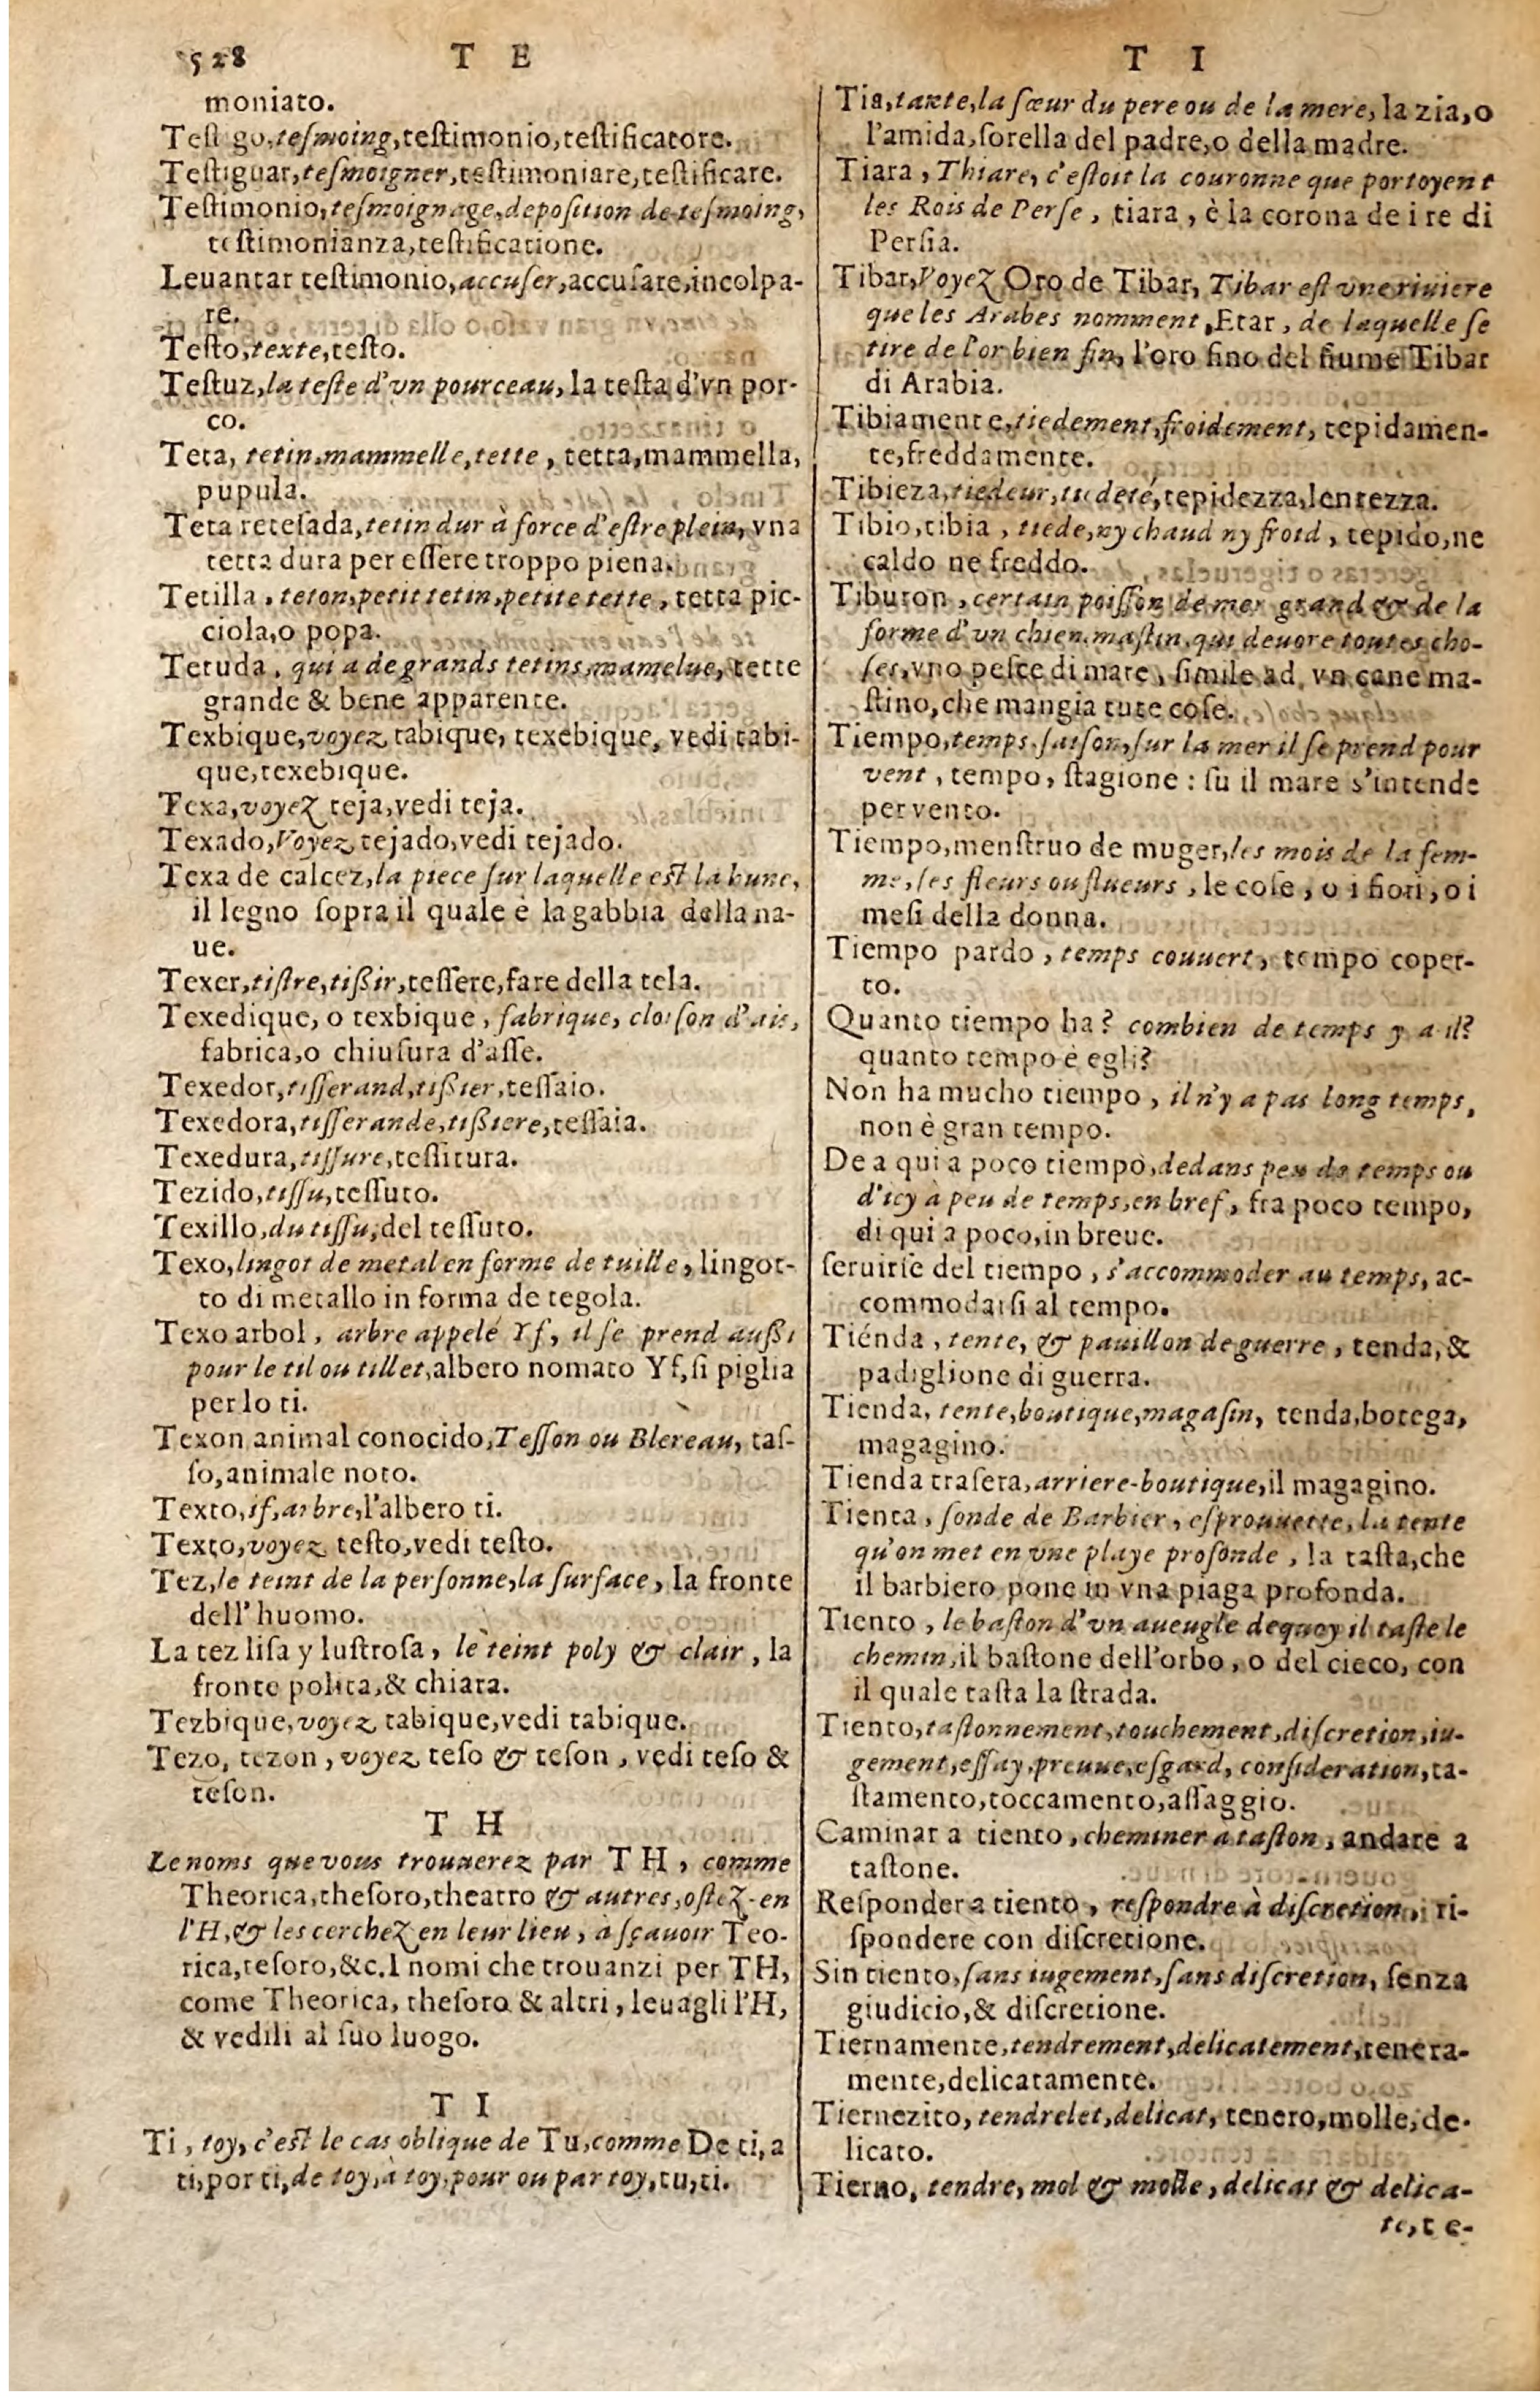 528 T E
moniato.
Testigo, tesmoing, testimonio, testificatore.
Testiguar, tesmoigner, testimoniare, testificare.
Testimonio, tesmoignage, deposition de tesmoing,
testimonianza, testificatione.
Leuantar testimonio, accuser, accusare, incolpa-
re.
Testo, texte, testo.
Testuz, la teste d'vn pourceau, la testa d'vn por-
co.
Teta, tetin, mammelle, tette, tetta, mammella,
pupula.
Teta retesada, tetin dur à force d'estre plein, vna
tetta dura per essere troppo piena.
Tetilla, teton, petit tetin, petite tette, tetta pic-
ciola, o popa.
Tetuda, qui a de grands tetins, mamelue, tette
grande & bene apparente.
Texbique, voyez tabique, texebique, vedi tabi-
que, texebique.
Texa, voyez teja, vedi teja.
Texado, Voyez tejado, vedi tejado.
Texa de calcez, la piece sur laquelle est la hune,
il legno sopra il quale è la gabbia della na-
ue.
Texer, tistre, tißir, tessere, fare della tela.
Texedique, o texbique, fabrique, cloison d'ais,
fabrica, o chiusura d'asse.
Texedor, tisserand, tißier, tessaio.
Texedora, tisserande, tißiere, tessaia.
Texedura, tissure, tessitura.
Tezido, tissu, tessuto.
Texillo, du tissu, del tessuto.
Texo, lingot de metal en forme de tuille, lingot-
to di metallo in forma de tegola.
Texo arbol, arbre appelé Yf, il se prend außi
pour le til ou tillet, albero nomato Yf, si piglia
per lo ti.
Texon animal conocido, Tesson ou Blereau, tas-
so, animale noto.
Texto, if, arbre, l'albero ti.
Texto, voyez testo, vedi testo.
Tez, le teint de la personne, la surface, la fronte
dell'huomo.
La tez lisa y lustrosa, le teint poly & clair, la
fronte polita, & chiara.
Tezbique, voyez tabique, vedi tabique.
Tezo, tezon, voyez teso & teson, vedi teso &
teson.
T H
Le noms que vous trouuerez par T H, comme
Theorica, thesoro, theatro & autres, ostez-en
l'H, & les cerchez en leur lieu, à sçauoir Teo-
rica, tesoro, &c. I nomi che trouanzi per TH,
come Theorica, thesoro & altri, leuagli l'H,
& vedili al suo luogo.
T I
Ti, toy, c'est le cas oblique de Tu, comme De ti, a
ti, por ti, de toy, à toy, pour ou par toy, tu, ti.
T I
Tia, tante, la sœur du pere ou de la mere, la zia, o
l'amida, sorella del padre, o della madre.
Tiara, Thiare, c'estoit la couronne que portoyent
les Rois de Perse, tiara, è la corona de i re di
Persia.
Tibar, Voyez Oro de Tibar, Tibar est vne riuiere
que les Arabes nomment, Etar, de laquelle se
tire de l'or bien fin, l'oro fino del fiume Tibar
di Arabia.
Tibiamente, tiedement, froidement, tepidamen-
te, freddamente.
Tibieza, tiedeur, tiedeté, tepidezza, lentezza.
Tibio, tibia, tiede, ny chaud ny froid, tepido, ne
caldo ne freddo.
Tiburon, certain poisson de mer grand & de la
forme d'vn chien mastin, qui deuore toutes cho-
ses, vno pesce di mare, simile ad vn cane ma-
stino, che mangia tute cose.
Tiempo, temps, saison, sur la mer il se prend pour
vent, tempo, stagione: su il mare s'intende
per vento.
Tiempo, menstruo de muger, les mois de la fem-
me, ses fleurs ou flueurs, le cose, o i fiori, o i
mesi della donna.
Tiempo pardo, temps couuert, tempo coper-
to.
Quanto tiempo ha? combien de temps y a-il?
quanto tempo è egli?
Non ha mucho tiempo, il n'y a pas long temps,
non è gran tempo.
De a qui a poco tiempo, dedans peu de temps ou
d'icy à peu de temps, en bref, fra poco tempo,
di qui a poco, in breue.
seruirse del tiempo, s'accommoder au temps, ac-
commodarsi al tempo.
Tiénda, tente, & pauillon de guerre, tenda, &
padiglione di guerra.
Tienda, tente, boutique, magasin, tenda, botega,
magagino.
Tienda trasera, arriere-boutique, il magagino.
Tienta, sonde de Barbier, esprouuette, la tente
qu'on met en vne playe profonde, la tasta, che
il barbiero pone in vna piaga profonda.
Tiento, le baston d'vn aueugle dequoy il taste le
chemin, il bastone dell'orbo, o del cieco, con
il quale tasta la strada.
Tiento, tastonnement, touchement, discretion, iu-
gement, essay, preuue, esgard, consideration, ta-
stamento, toccamento, assaggio.
Caminar a tiento, cheminer a taston, andare a
tastone.
Responder a tiento, respondre à discretion, ri-
spondere con discretione.
Sin tiento, sans iugement, sans discretion, senza
giudicio, & discretione.
Tiernamente, tendrement, delicatement, tenera-
mente, delicatamente.
Tiernezito, tendrelet, delicat, tenero, molle, de-
licato.
Tierno, tendre, mol & molle, delicat & delica-
te, te-